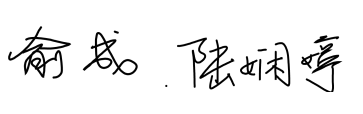 俞成 陆娴婷